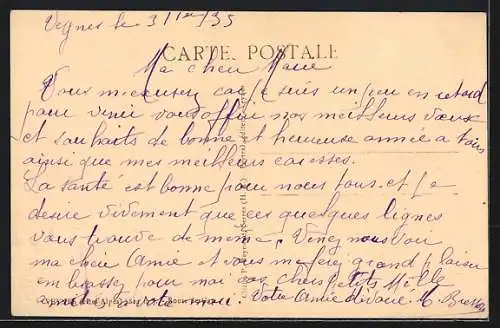 Veynes le 3 1er/35
CARTE POSTALE
Ma cher Marie
Vous m'excuserez car je suis un peu en retard
pour venir vous offrir nos meilleurs vœux
et souhaits de bonne et heureuse année a tous
ainsi que mes meilleurs caresses.
La santé est bonne pour nous tous. et je
desire vivement que ces quelques lignes
vous trouve de meme. Venez nous voir
ma cher Amie et vous me ferez grand plaisir
embrassez pour moi ces chers petits
de votre mari. Votre Amie dévouée M